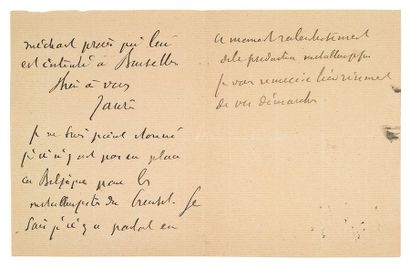 méchant procès qui lui
est intenté à Bruxelles
à vous
Jaurès
Je ne suis point étonné
qu'il n'y ait pas en place
en Belgique pour les
métallurgistes du Creusot. Je
sais qu'il y a partout en
ce moment ralentissement
de la production métallurgique
Je vous remercie
de vos démarches